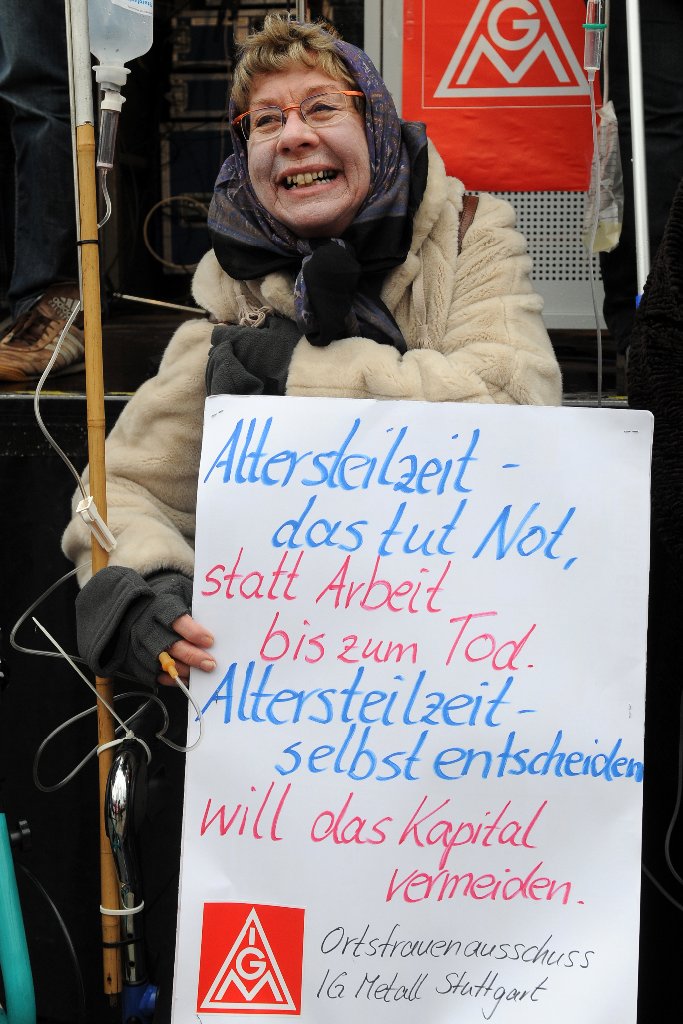 IGM
Altersteilzeit -
das tut Not,
statt Arbeit
bis zum Tod.
Altersteilzeit -
selbst entscheiden
will das Kapital
vermeiden.
IGM
Ortsfrauenausschuss
IG Metall Stuttgart